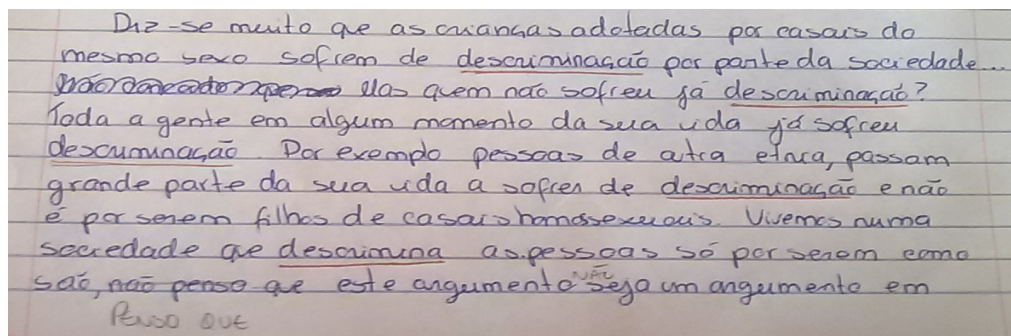 Diz-se muito que as crianças adotadas por casais do
mesmo sexo sofrem de descriminação por parte da sociedade...
Mas quem não sofreu já descriminação?
Toda a gente em algum momento da sua vida já sofreu
descriminação. Por exemplo pessoas de otra etnia, passam
grande parte da sua vida a sofrer de descriminação e não
é por serem filhos de casais homossexuais. Vivemos numa
sociedade que descrimina as pessoas só por serem como
são, não penso que este argumento NÃO seja um argumento em
Penso QUE